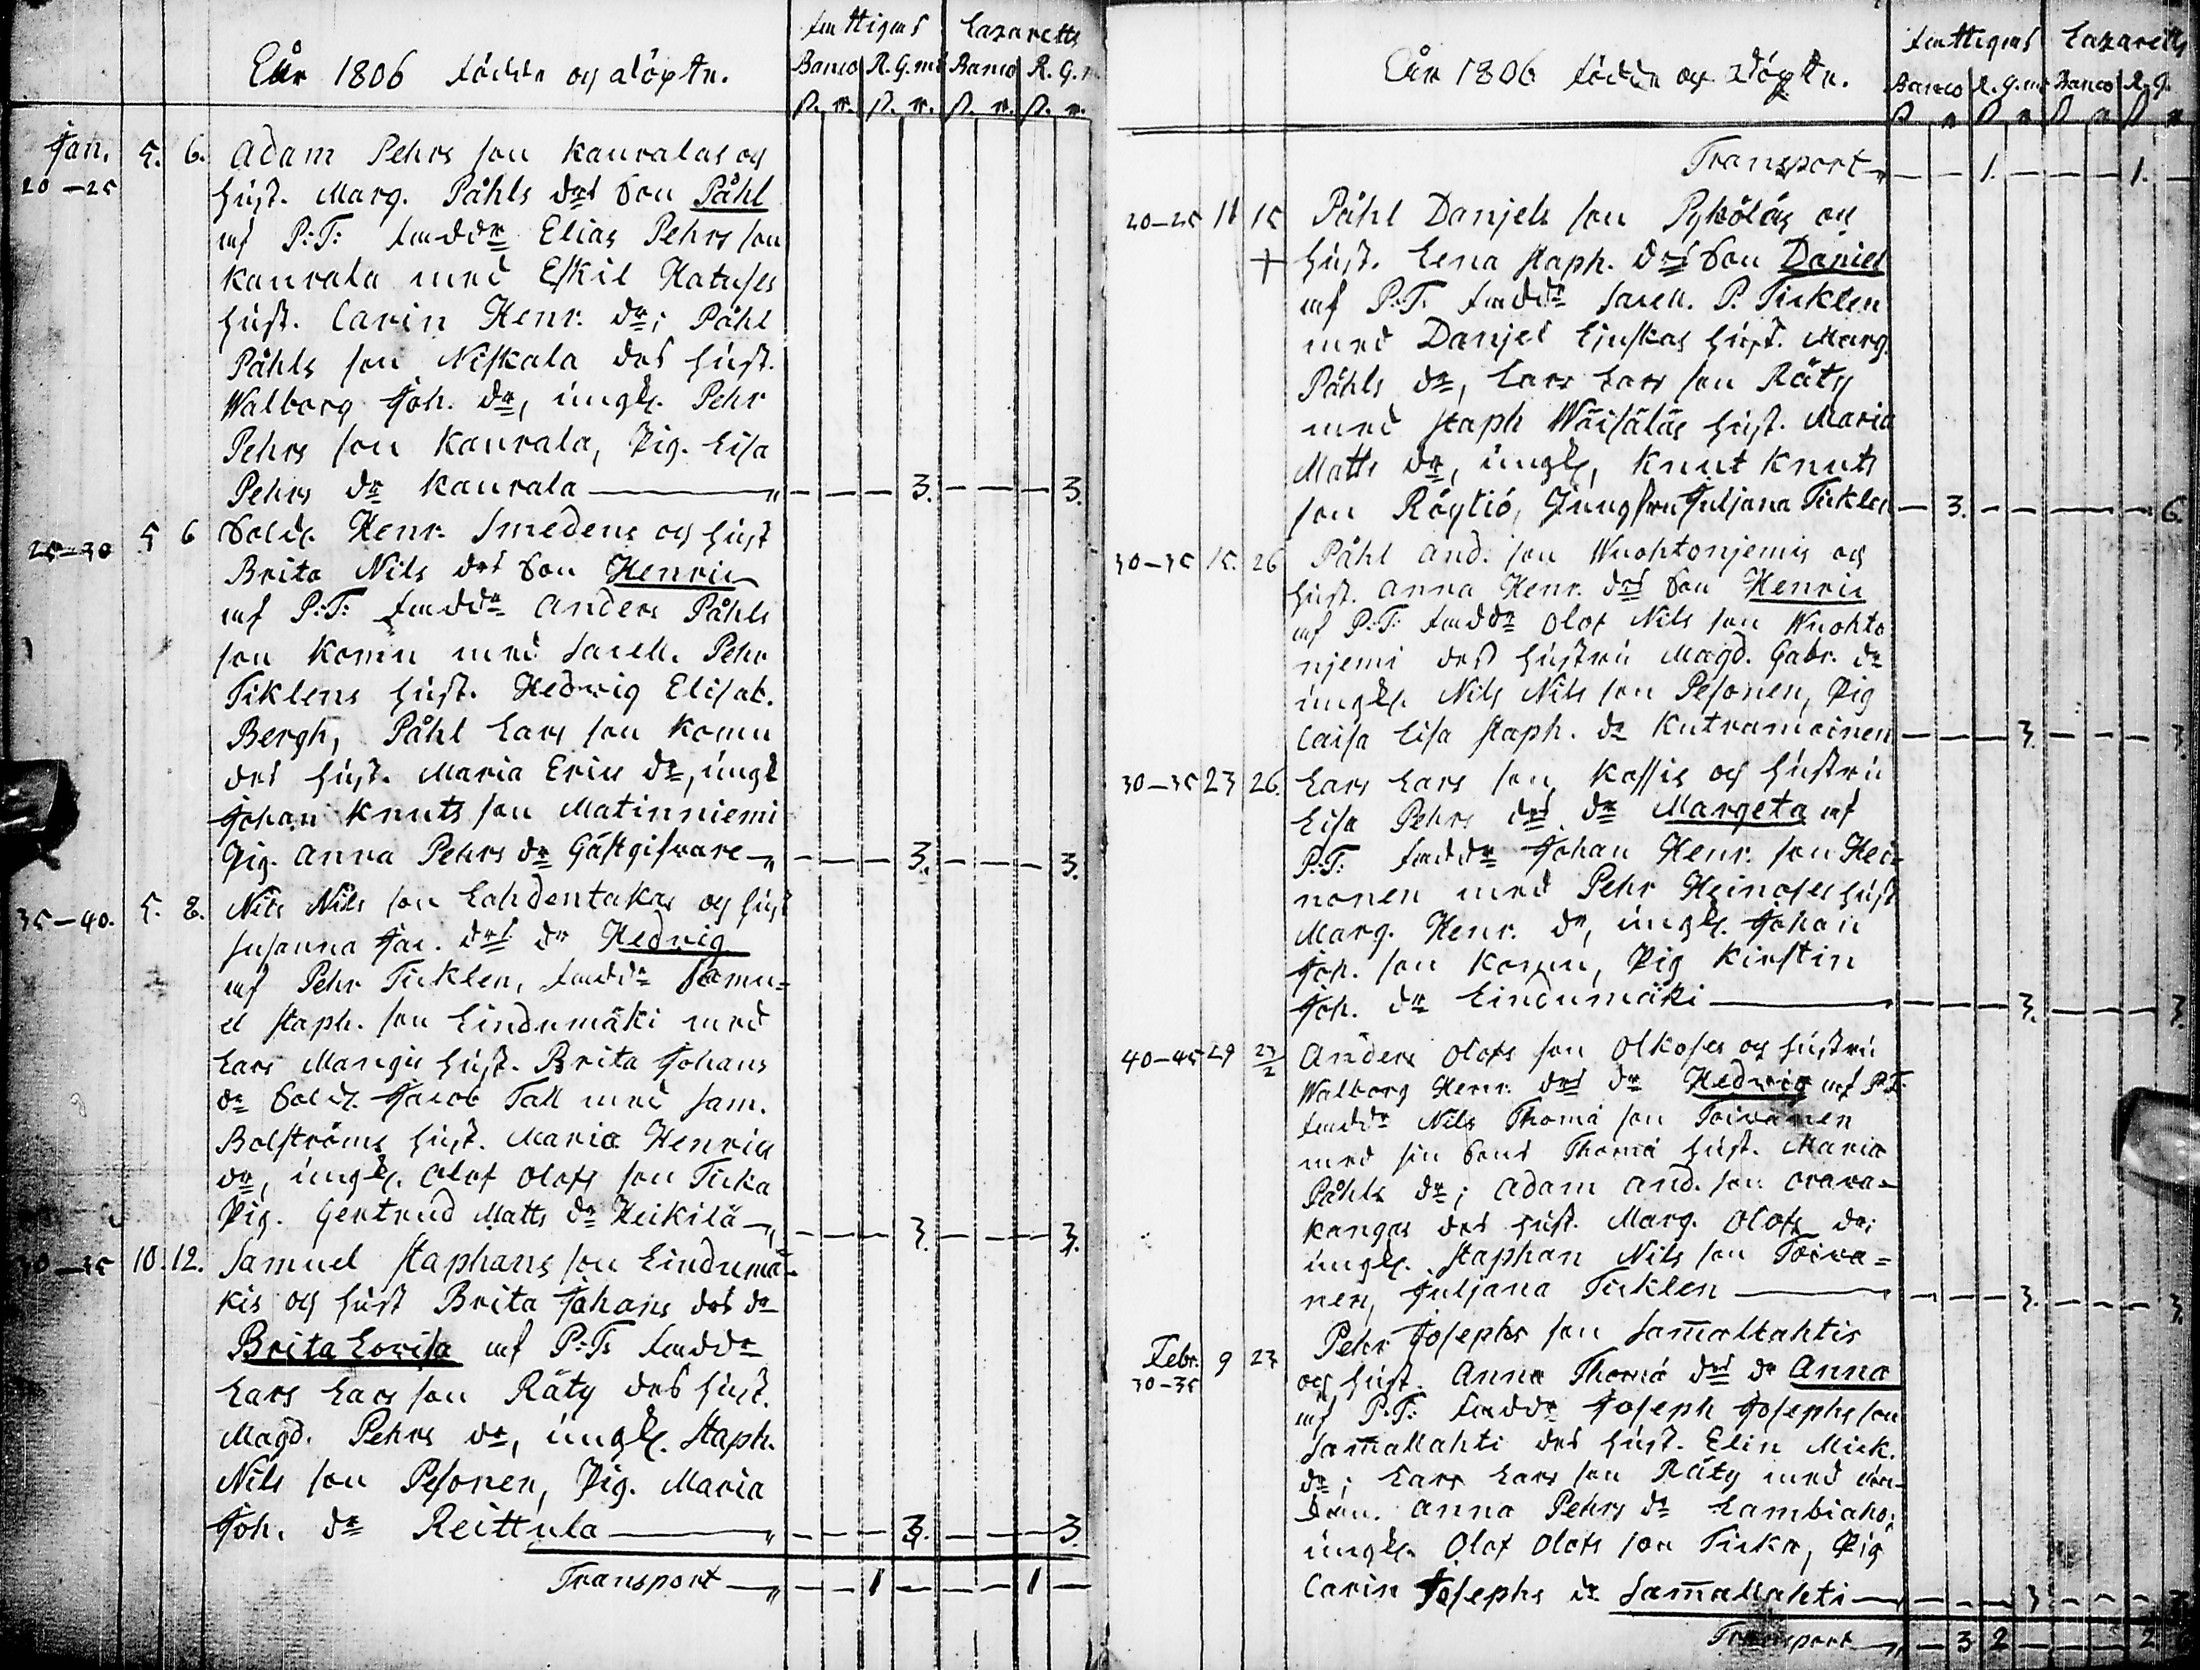 Åhr 1806 födde og döpte.
Fattigas Lazaretts
Banco R. G.md Banco R. G.m
ß. r. ß. r. ß. r. ß. r.
Jan. 5. 6. Adam Pehrs son Kauralas og
20-25 hust. Marg. Påhls drs Son Påhl
af P:T: Faddr Elias Pehrs son
Kaurala med Eskil Hatuses
hust. Carin Henr. dr; Påhl
Påhls son Niskala des hust.
Walborg Joh. dr, ungk. Pehr
Pehrs son Kaurala, Pig. Lisa
Pehrs dr Kaurala — 3. 3.
25-30 5 6 Sold. Henr. Smedens og hust
Brita Nils drs Son Henric
af P:T: Faddr Anders Påhls
son Komu med Sacell. Pehr
Tiklens hust. Hedwig Elisab.
Bergh, Påhl Lars son Komu
des hust. Maria Erics dr, ungk
Johan Knuts son Matinniemi
Pig. Anna Pehrs dr Gästgifvare — 3. 3.
35-40. 5. 8. Nils Nils son Lahdentakas og hust
Susanna Jac. drs dr Hedvig
af Pehr Ticklen, Faddr Samu=
el Staph. son Lindumäki med
Lars Mangis hust. Brita Johans
dr Sold. Jacob Tall med Sam.
Bolströms hust. Maria Henrics
dr, ungk. Olof Olofs son Ticka
Pig. Gertrud Matts dr Heikilä — 3. 3.
30-35 10. 12. Samuel Staphans son Lindumä=
kis og hust Brita Johans drs dr
Brita Lovisa af P:T: Faddr
Lars Lars son Räty des hust.
Magd. Pehrs dr, ungk. Staph.
Nils son Pesonen, Pig. Maria
Joh. dr Reittula — 3. 3.
Transport — 1 — 1 —
Åhr 1806 födde og döpte.
Fattigas Lazaretts
Banco R. G.m Banco R. G.
ß r ß r ß r ß r
Transport — 1. — 1. —
20-25 11 15 Påhl Danjels son Pyköläs og
+ hust. Lena Staph. drs Son Daniel
af P.T. Faddr Sacell. P. Ticklen
med Danjel Liuskas hust. Marg.
Påhls dr, Lars Lars son Räty
med Staph Wäisäläs hust. Maria
Matts dr, ungk, Knut Knuts
son Röytiö, Jungfru Juljana Ticklen — 3. — 6.
30-35 15. 26 Påhl And. son Wuohtonjemis og
hust. Anna Henr. drs Son Henric
af P:T: Faddr Olof Nils son Wuohto
njemi des hustru Magd. Gabr. dr
ungk. Nils Nils son Pesonen, Pig
Caisa Lisa Staph. dr Kutramoinen — 3. 3.
30-35 23 26. Lars Lars son Kassis og hustru
Lisa Pehrs drs dr Margeta af
P:T: Faddr Johan Henr. son Hei=
nonen med Pehr Heinoses hust
Marg. Henr. dr, ungk. Johan
Joh. son Komu, Pig Kirstin
Joh. dr Lindumäki — 3. 3.
40-45 29 27/2 Anders Olofs son Olkoses og hustru
Walborg Henr. drs dr Hedwig af P.T.
Faddr Nils Thomæ son Toivanen
med sin Sons Thomæ hust. Maria
Påhls dr; Adam And. son Orava=
kangas des hust. Marg. Olofs dr;
ungk. Staphan Nils son Toiva=
nen, Juljana Ticklen — 3. 3.
Febr. 9 23 Pehr Josephs son Sam̄allahtis
30-35 og hust. Anna Thomæ drs dr Anna
af P.T: Faddr Joseph Josephs son
Sam̄allahti des hust. Elin Mick.
dr; Lars Lars son Räty med
Anna Pehrs dr Lambiaho;
ungk. Olof Olofs son Ticka, Pig
Carin Josephs dr Sam̄allahti — 3 3
Transport — 3 2 — 2